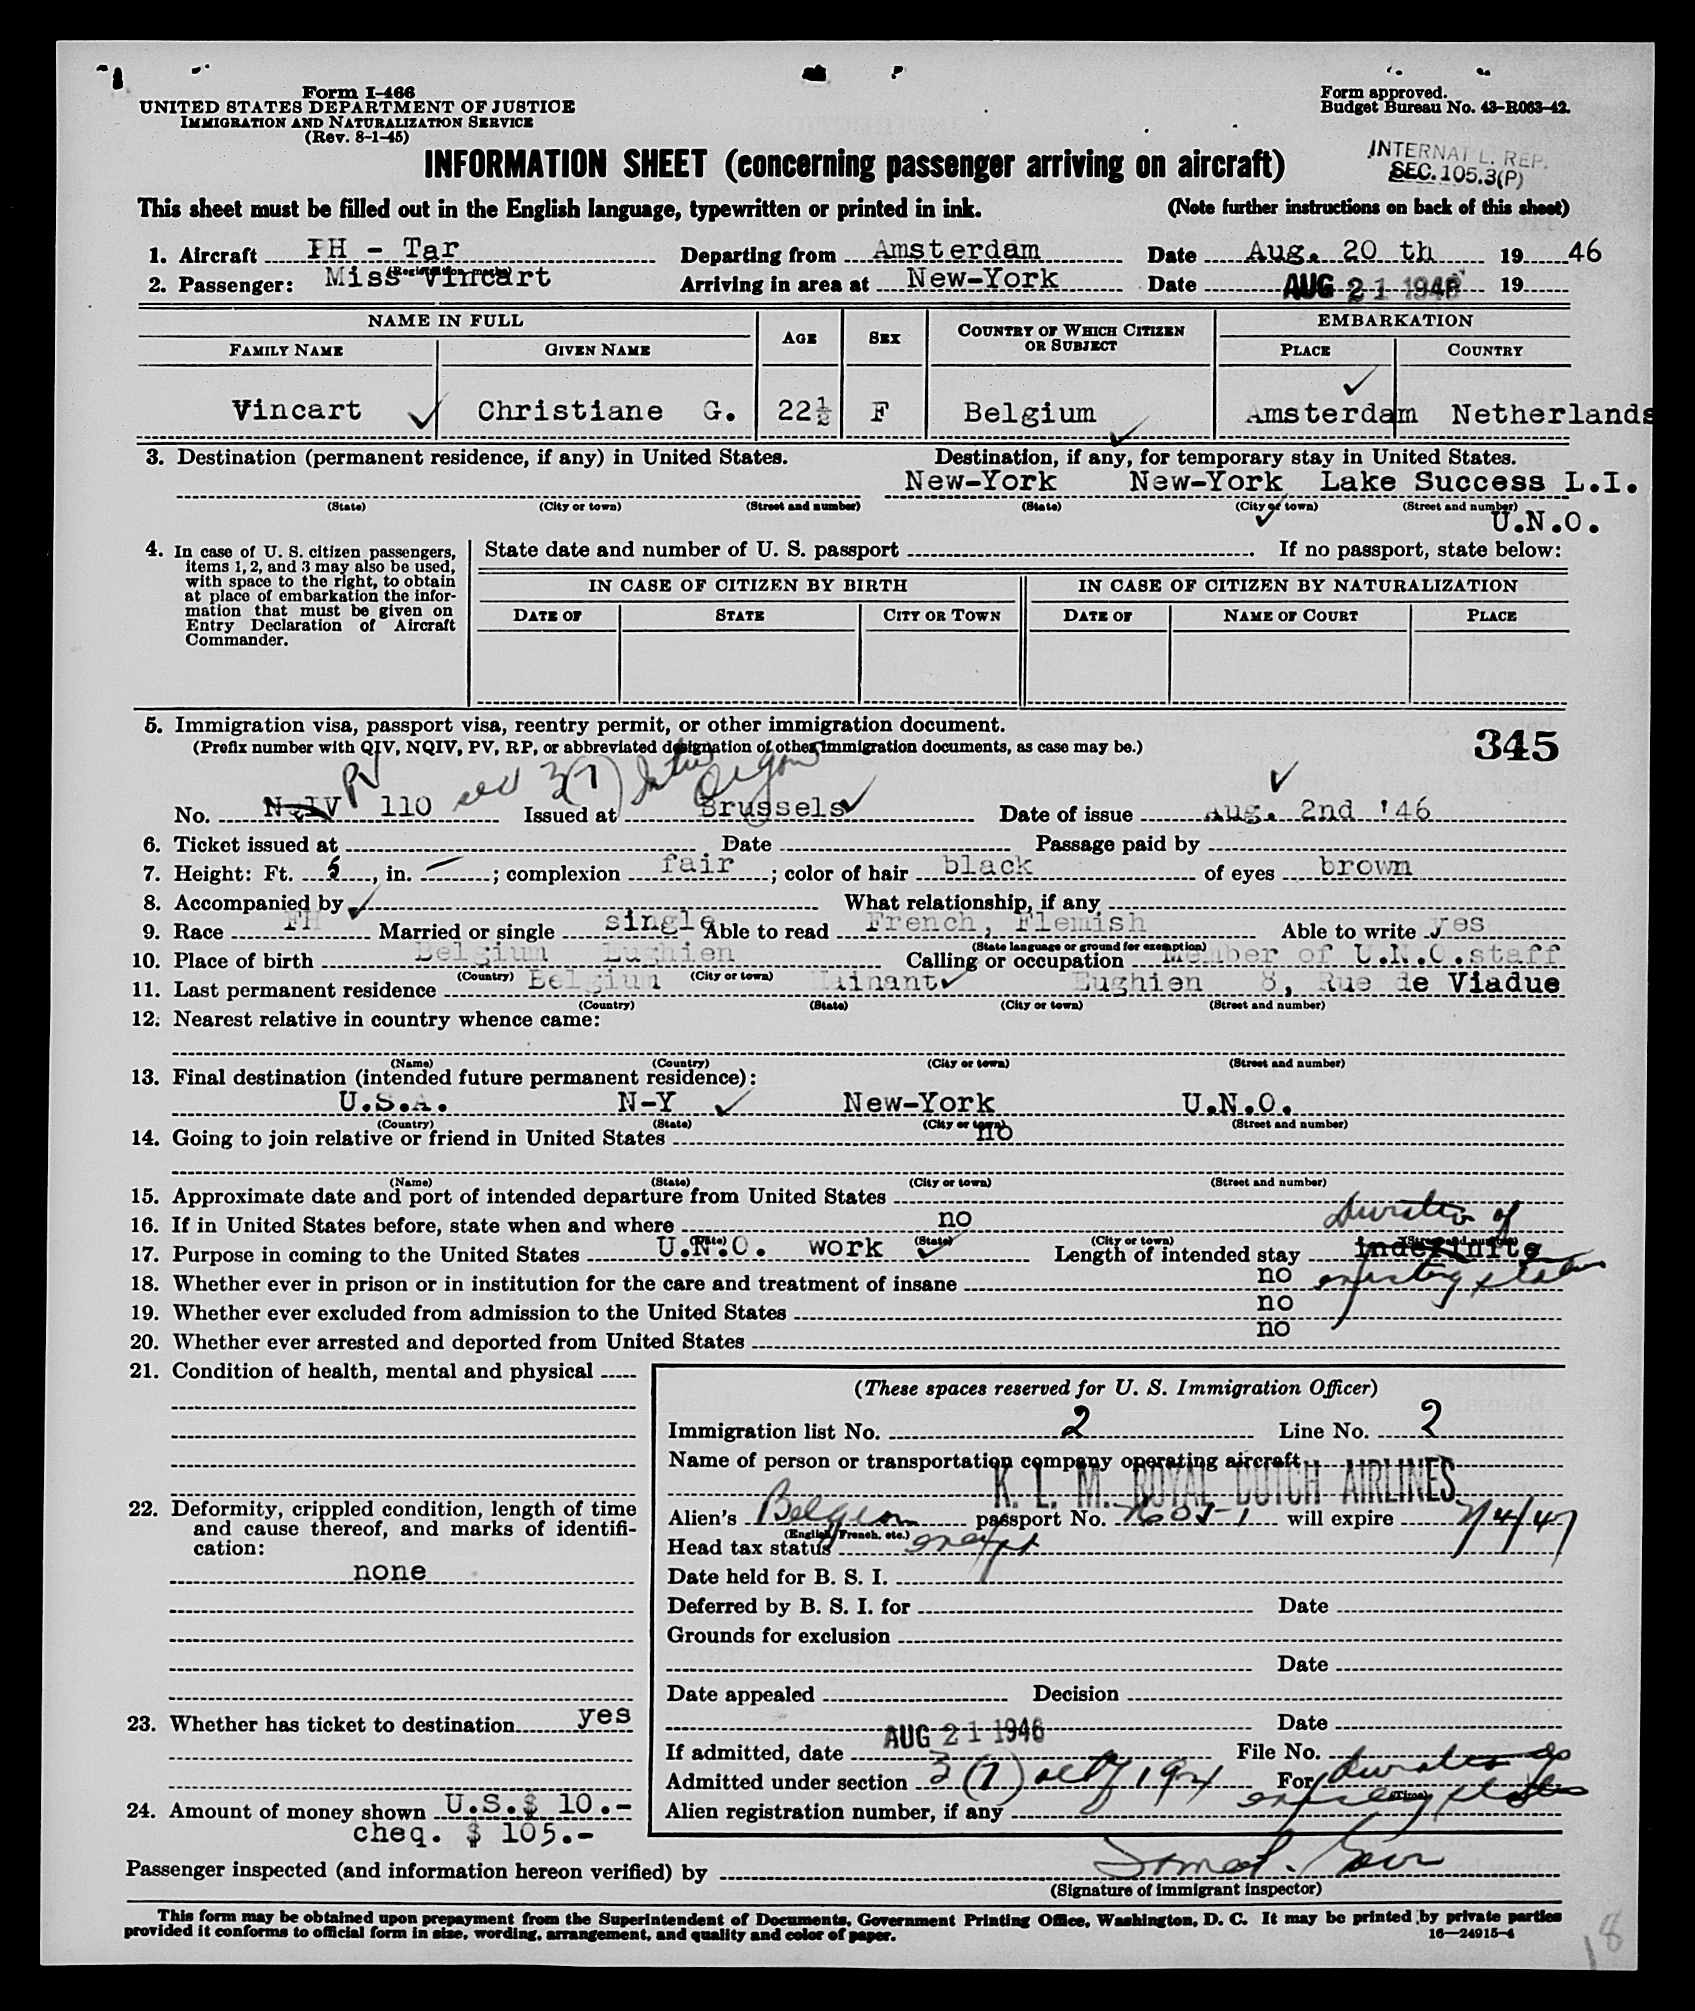 Form I-466
UNITED STATES DEPARTMENT OF JUSTICE
IMMIGRATION AND NATURALIZATION SERVICE
(Rev. 8-1-45)
Form approved.
Budget Bureau No. 43-R063-42.
INTERNAT L. REP.
SEC. 105.3(P)
INFORMATION SHEET (concerning passenger arriving on aircraft)
This sheet must be filled out in the English language, typewritten or printed in ink. (Note further instructions on back of this sheet)
1. Aircraft PH - Tar Departing from Amsterdam Date Aug. 20 th 19 46
(Registration marks)
2. Passenger: Miss Vincart Arriving in area at New-York Date AUG 21 1946 19
NAME IN FULL AGE SEX COUNTRY OF WHICH CITIZEN OR SUBJECT EMBARKATION
FAMILY NAME GIVEN NAME PLACE COUNTRY
Vincart Christiane G. 22½ F Belgium Amsterdam Netherlands
3. Destination (permanent residence, if any) in United States. Destination, if any, for temporary stay in United States.
New-York New-York Lake Success L.I.
(State) (City or town) (Street and number) (State) (City or town) (Street and number)
U.N.O.
4. In case of U. S. citizen passengers, items 1, 2, and 3 may also be used, with space to the right, to obtain at place of embarkation the information that must be given on Entry Declaration of Aircraft Commander.
State date and number of U. S. passport If no passport, state below:
IN CASE OF CITIZEN BY BIRTH IN CASE OF CITIZEN BY NATURALIZATION
DATE OF STATE CITY OR TOWN DATE OF NAME OF COURT PLACE
5. Immigration visa, passport visa, reentry permit, or other immigration document.
(Prefix number with QIV, NQIV, PV, RP, or abbreviated designation of other immigration documents, as case may be.)
345
PV sec 3(7)
No. N.IV 110 Issued at Brussels Date of issue Aug. 2nd '46
6. Ticket issued at Date Passage paid by
7. Height: Ft. 5, in. –; complexion fair; color of hair black of eyes brown
8. Accompanied by What relationship, if any
9. Race FH Married or single single Able to read French, Flemish Able to write yes
(State language or ground for exemption)
10. Place of birth Belgium Eughien Calling or occupation Member of U.N.O. staff
(Country) (City or town)
11. Last permanent residence Belgium Hainant Eughien 8, Rue de Viadue
(Country) (State) (City or town) (Street and number)
12. Nearest relative in country whence came:
(Name) (Country) (City or town) (Street and number)
13. Final destination (intended future permanent residence):
U.S.A. N-Y New-York U.N.O.
(Country) (State) (City or town) (Street and number)
14. Going to join relative or friend in United States no
(Name) (State) (City or town) (Street and number)
15. Approximate date and port of intended departure from United States
16. If in United States before, state when and where no
duration of
(Date) (State) (City or town) (Street and number)
17. Purpose in coming to the United States U.N.O. work Length of intended stay indefinite
existing status
18. Whether ever in prison or in institution for the care and treatment of insane no
19. Whether ever excluded from admission to the United States no
20. Whether ever arrested and deported from United States no
21. Condition of health, mental and physical
22. Deformity, crippled condition, length of time and cause thereof, and marks of identification:
none
23. Whether has ticket to destination yes
24. Amount of money shown U.S.$ 10.-
cheq. $ 105.-
(These spaces reserved for U. S. Immigration Officer)
Immigration list No. 2 Line No. 2
Name of person or transportation company operating aircraft
K. L. M. ROYAL DUTCH AIRLINES
Alien's Belgian passport No. will expire
(English, French, etc.)
Head tax status exempt
Date held for B. S. I.
Deferred by B. S. I. for Date
Grounds for exclusion
Date
Date appealed Decision
Date
If admitted, date AUG 21 1946 File No.
Admitted under section 3(7) act of 1924 For duration of
(Time)
existing status
Alien registration number, if any
Passenger inspected (and information hereon verified) by
(Signature of immigrant inspector)
This form may be obtained upon prepayment from the Superintendent of Documents, Government Printing Office, Washington, D. C. It may be printed by private parties
provided it conforms to official form in size, wording, arrangement, and quality and color of paper. 16—24915-4
18